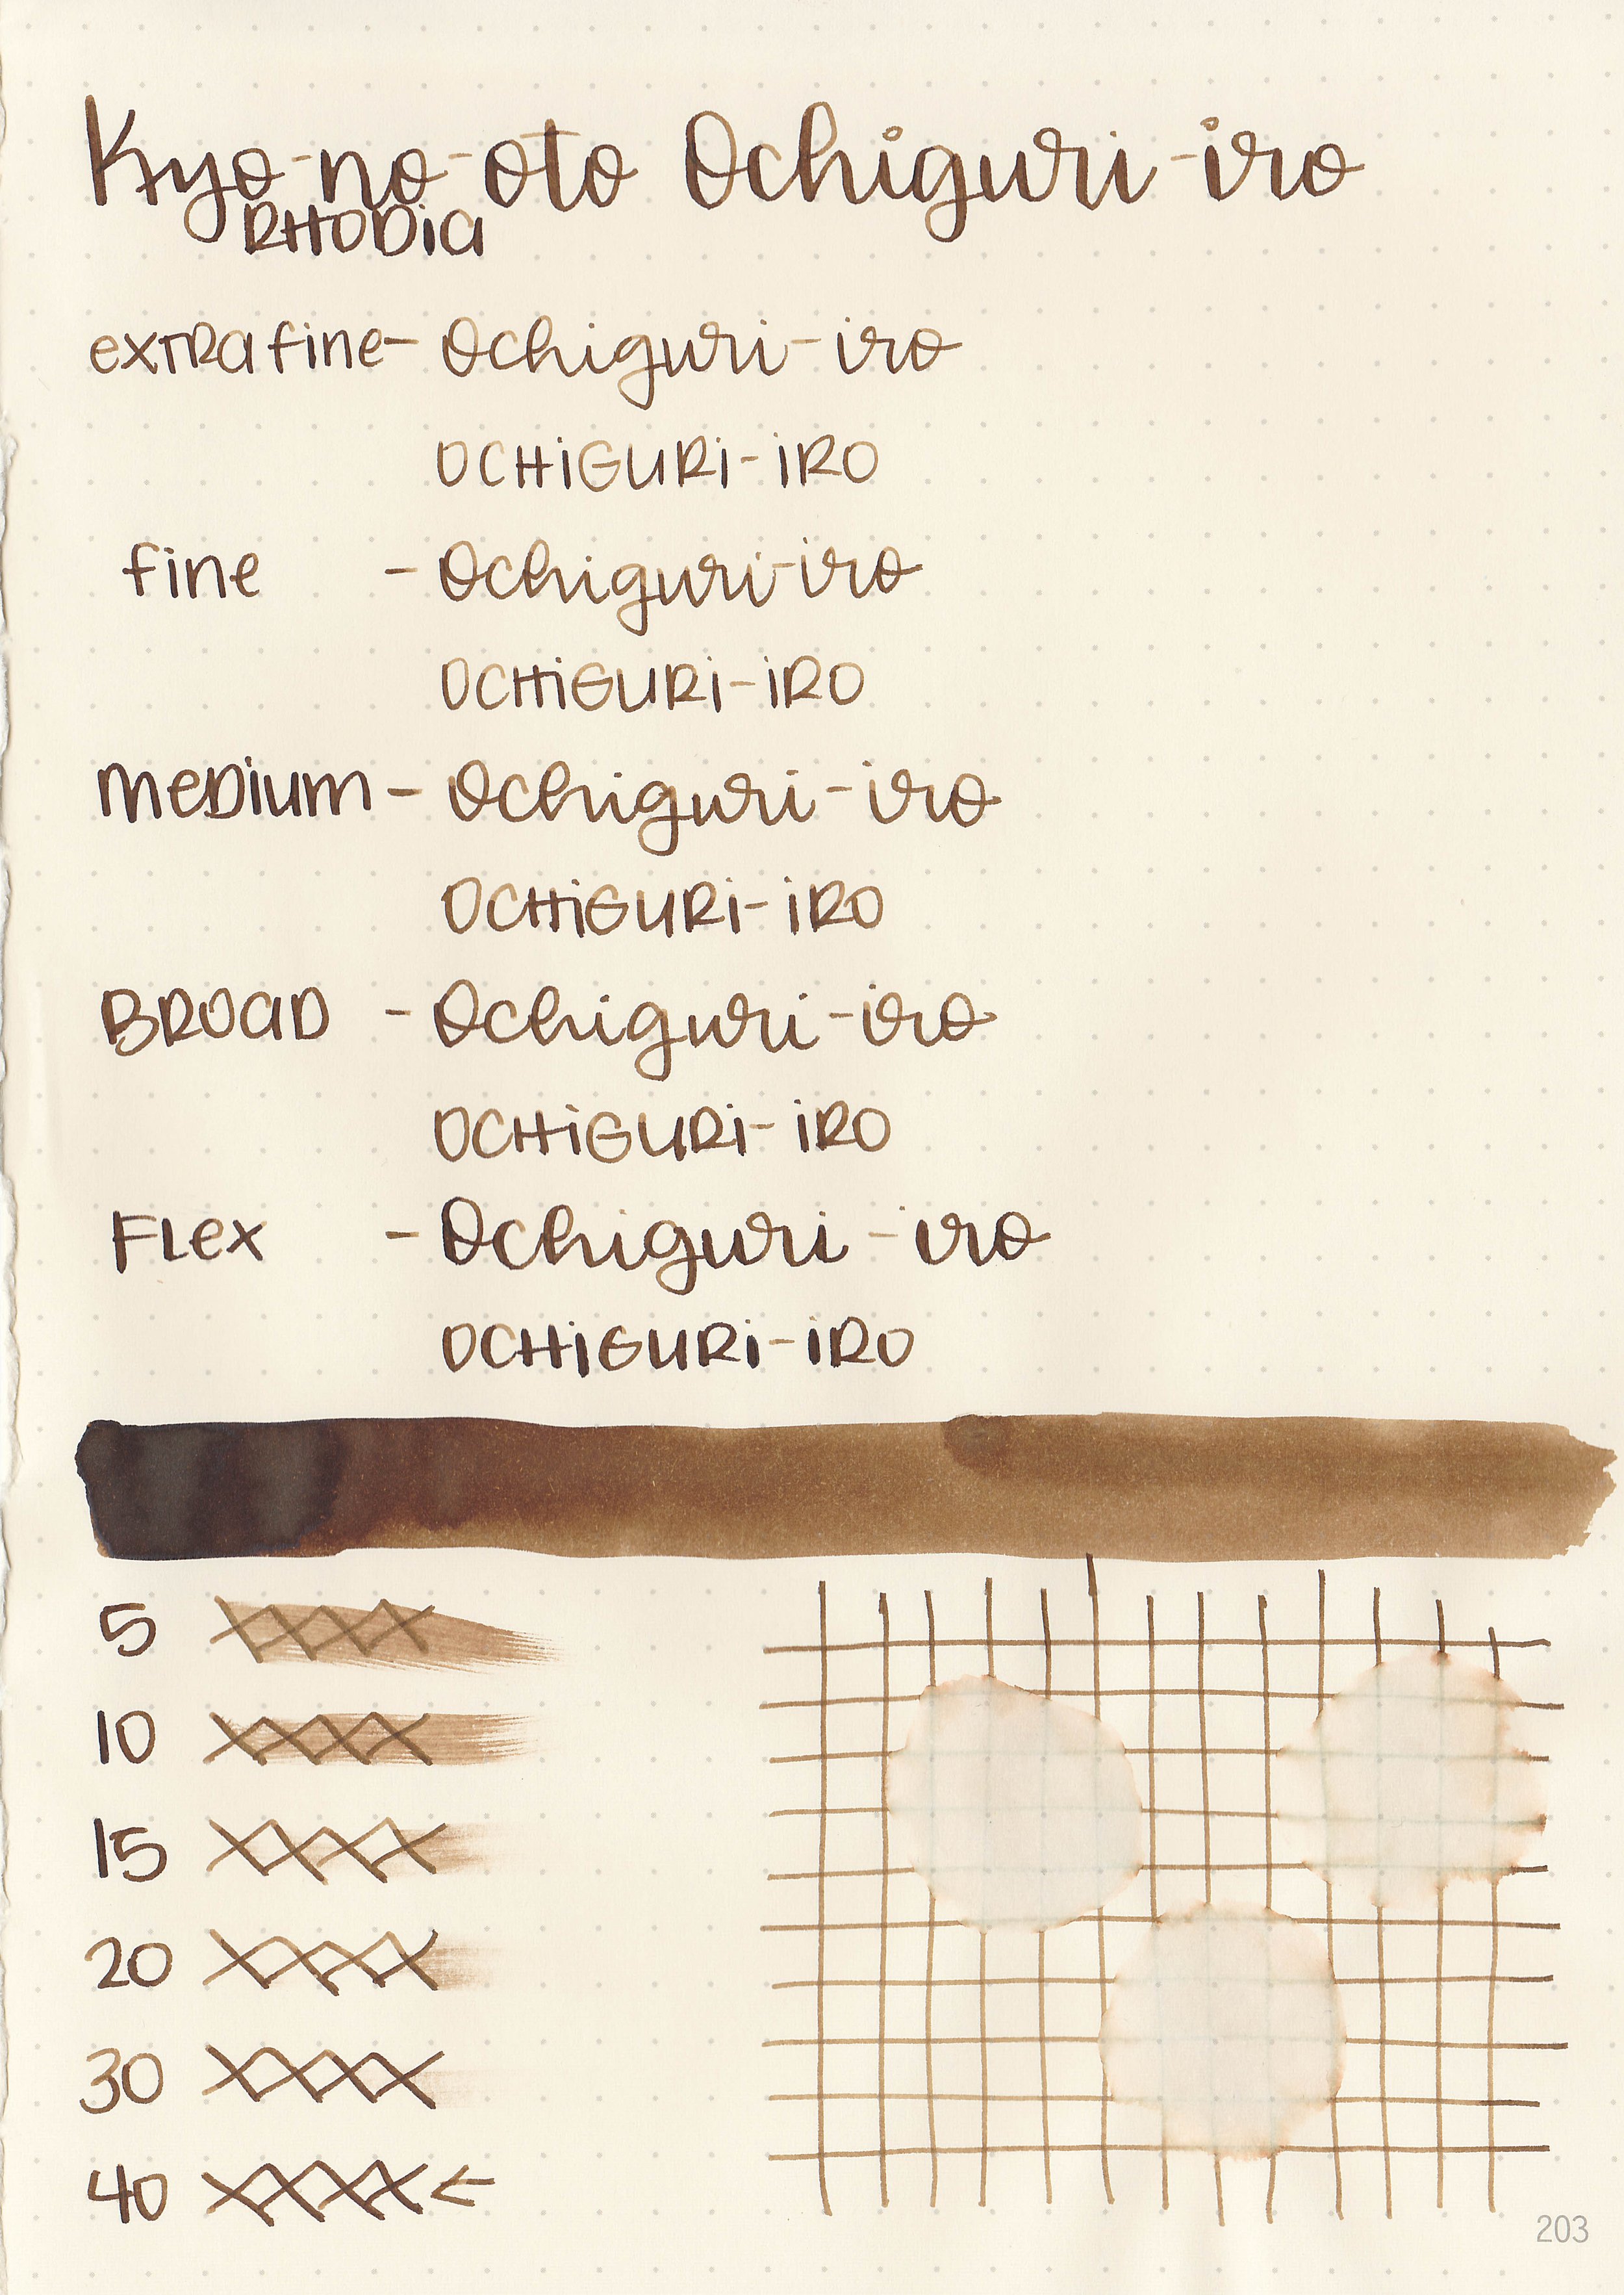 Kyo-no-oto Ochiguri-iro
RHODia
exTRa fine - Ochiguri-iro
OCHiGURi-iRO
fine - Ochiguri-iro
OCHiGURi-iRO
meDium - Ochiguri-iro
OCHiGURi-iRO
BROaD - Ochiguri-iro
OCHiGURi-iRO
FLex - Ochiguri-iro
OCHiGURi-iRO
5 XXXX
10 XXXX
15 XXXX
20 XXXX
30 XXXX
40 XXXX ←
203